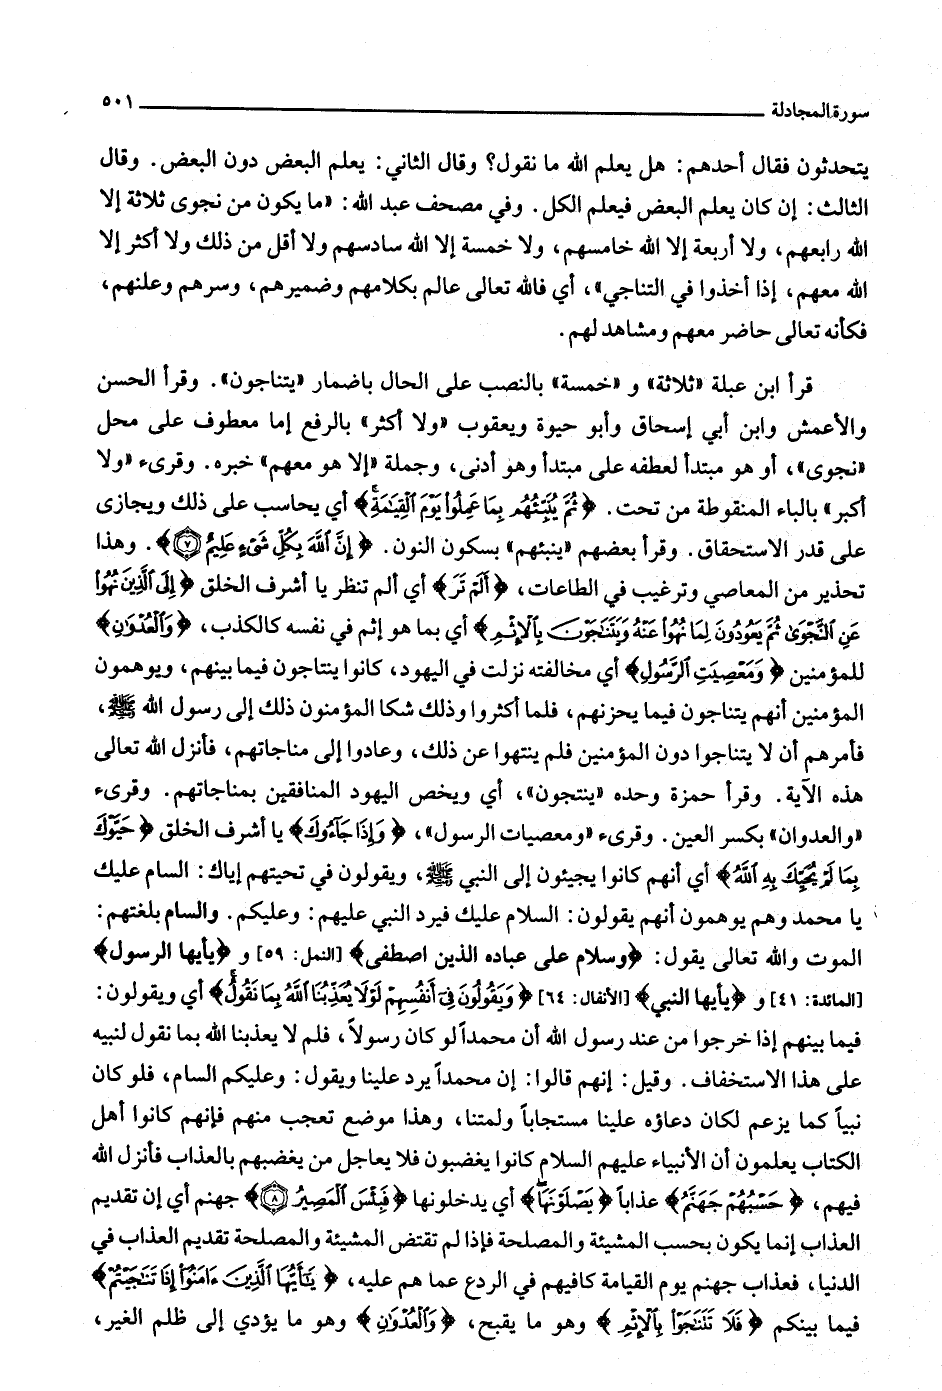 سورة المجادلة ٥٠١
يتحدثون فقال أحدهم: هل يعلم الله ما نقول؟ وقال الثاني: يعلم البعض دون البعض. وقال
الثالث: إن كان يعلم البعض فيعلم الكل. وفي مصحف عبد الله: «ما يكون من نجوى ثلاثة إلا
الله رابعهم، ولا أربعة إلا الله خامسهم، ولا خمسة إلا الله سادسهم ولا أقل من ذلك ولا أكثر إلا
الله معهم، إذا أخذوا في التناجي»، أي فالله تعالى عالم بكلامهم وضميرهم، وسرهم وعلنهم،
فكأنه تعالى حاضر معهم ومشاهد لهم.
قرأ ابن عبلة «ثلاثة» و «خمسة» بالنصب على الحال باضمار «يتناجون». وقرأ الحسن
والأعمش وابن أبي إسحاق وأبو حيوة ويعقوب «ولا أكثر» بالرفع إما معطوف على محل
«نجوى»، أو هو مبتدأ لعطفه على مبتدأ وهو أدنى، وجملة «إلا هو معهم» خبره. وقرىء «ولا
أكبر» بالباء المنقوطة من تحت. ﴿ ثُمَّ يُنَبِّئُهُم بِمَا عَمِلُوا۟ يَوْمَ ٱلْقِيَٰمَةِ ﴾ أي يحاسب على ذلك ويجازى
على قدر الاستحقاق. وقرأ بعضهم «ينبئهم» بسكون النون. ﴿ إِنَّ ٱللَّهَ بِكُلِّ شَىْءٍ عَلِيمٌ ٧ ﴾. وهذا
تحذير من المعاصي وترغيب في الطاعات، ﴿ أَلَمْ تَرَ ﴾ أي ألم تنظر يا أشرف الخلق ﴿ إِلَى ٱلَّذِينَ نُهُوا۟
عَنِ ٱلنَّجْوَىٰ ثُمَّ يَعُودُونَ لِمَا نُهُوا۟ عَنْهُ وَيَتَنَٰجَوْنَ بِٱلْإِثْمِ ﴾ أي بما هو إثم في نفسه كالكذب، ﴿ وَٱلْعُدْوَٰنِ ﴾
للمؤمنين ﴿ وَمَعْصِيَتِ ٱلرَّسُولِ ﴾ أي مخالفته نزلت في اليهود، كانوا يتناجون فيما بينهم، ويوهمون
المؤمنين أنهم يتناجون فيما يحزنهم، فلما أكثروا وذلك شكا المؤمنون ذلك إلى رسول الله ﷺ،
فأمرهم أن لا يتناجوا دون المؤمنين فلم ينتهوا عن ذلك، وعادوا إلى مناجاتهم، فأنزل الله تعالى
هذه الآية. وقرأ حمزة وحده «ينتجون»، أي ويخص اليهود المنافقين بمناجاتهم. وقرىء
«والعدوان» بكسر العين. وقرىء «ومعصيات الرسول»، ﴿ وَإِذَا جَآءُوكَ ﴾ يا أشرف الخلق ﴿ حَيَّوْكَ
بِمَا لَمْ يُحَيِّكَ بِهِ ٱللَّهُ ﴾ أي أنهم كانوا يجيئون إلى النبي ﷺ، ويقولون في تحيتهم إياك: السام عليك
يا محمد وهم يوهمون أنهم يقولون: السلام عليك فيرد النبي عليهم: وعليكم. والسام بلغتهم:
الموت والله تعالى يقول: ﴿وسلام على عباده الذين اصطفى﴾ [النمل: ٥٩] و ﴿يأيها الرسول﴾
[المائدة: ٤١] و ﴿يأيها النبي﴾ [الأنفال: ٦٤] ﴿ وَيَقُولُونَ فِىٓ أَنفُسِهِمْ لَوْلَا يُعَذِّبُنَا ٱللَّهُ بِمَا نَقُولُ ﴾ أي ويقولون:
فيما بينهم إذا خرجوا من عند رسول الله أن محمداً لو كان رسولاً، فلم لا يعذبنا الله بما نقول لنبيه
على هذا الاستخفاف. وقيل: إنهم قالوا: إن محمداً يرد علينا ويقول: وعليكم السام، فلو كان
نبياً كما يزعم لكان دعاؤه علينا مستجاباً ولمتنا، وهذا موضع تعجب منهم فإنهم كانوا أهل
الكتاب يعلمون أن الأنبياء عليهم السلام كانوا يغضبون فلا يعاجل من يغضبهم بالعذاب فأنزل الله
فيهم، ﴿ حَسْبُهُمْ جَهَنَّمُ ﴾ عذاباً ﴿ يَصْلَوْنَهَا ﴾ أي يدخلونها ﴿ فَبِئْسَ ٱلْمَصِيرُ ٨ ﴾ جهنم أي إن تقديم
العذاب إنما يكون بحسب المشيئة والمصلحة فإذا لم تقتض المشيئة والمصلحة تقديم العذاب في
الدنيا، فعذاب جهنم يوم القيامة كافيهم في الردع عما هم عليه، ﴿ يَٰٓأَيُّهَا ٱلَّذِينَ ءَامَنُوٓا۟ إِذَا تَنَٰجَيْتُمْ ﴾
فيما بينكم ﴿ فَلَا تَتَنَٰجَوْا۟ بِٱلْإِثْمِ ﴾ وهو ما يقبح، ﴿ وَٱلْعُدْوَٰنِ ﴾ وهو ما يؤدي إلى ظلم الغير،